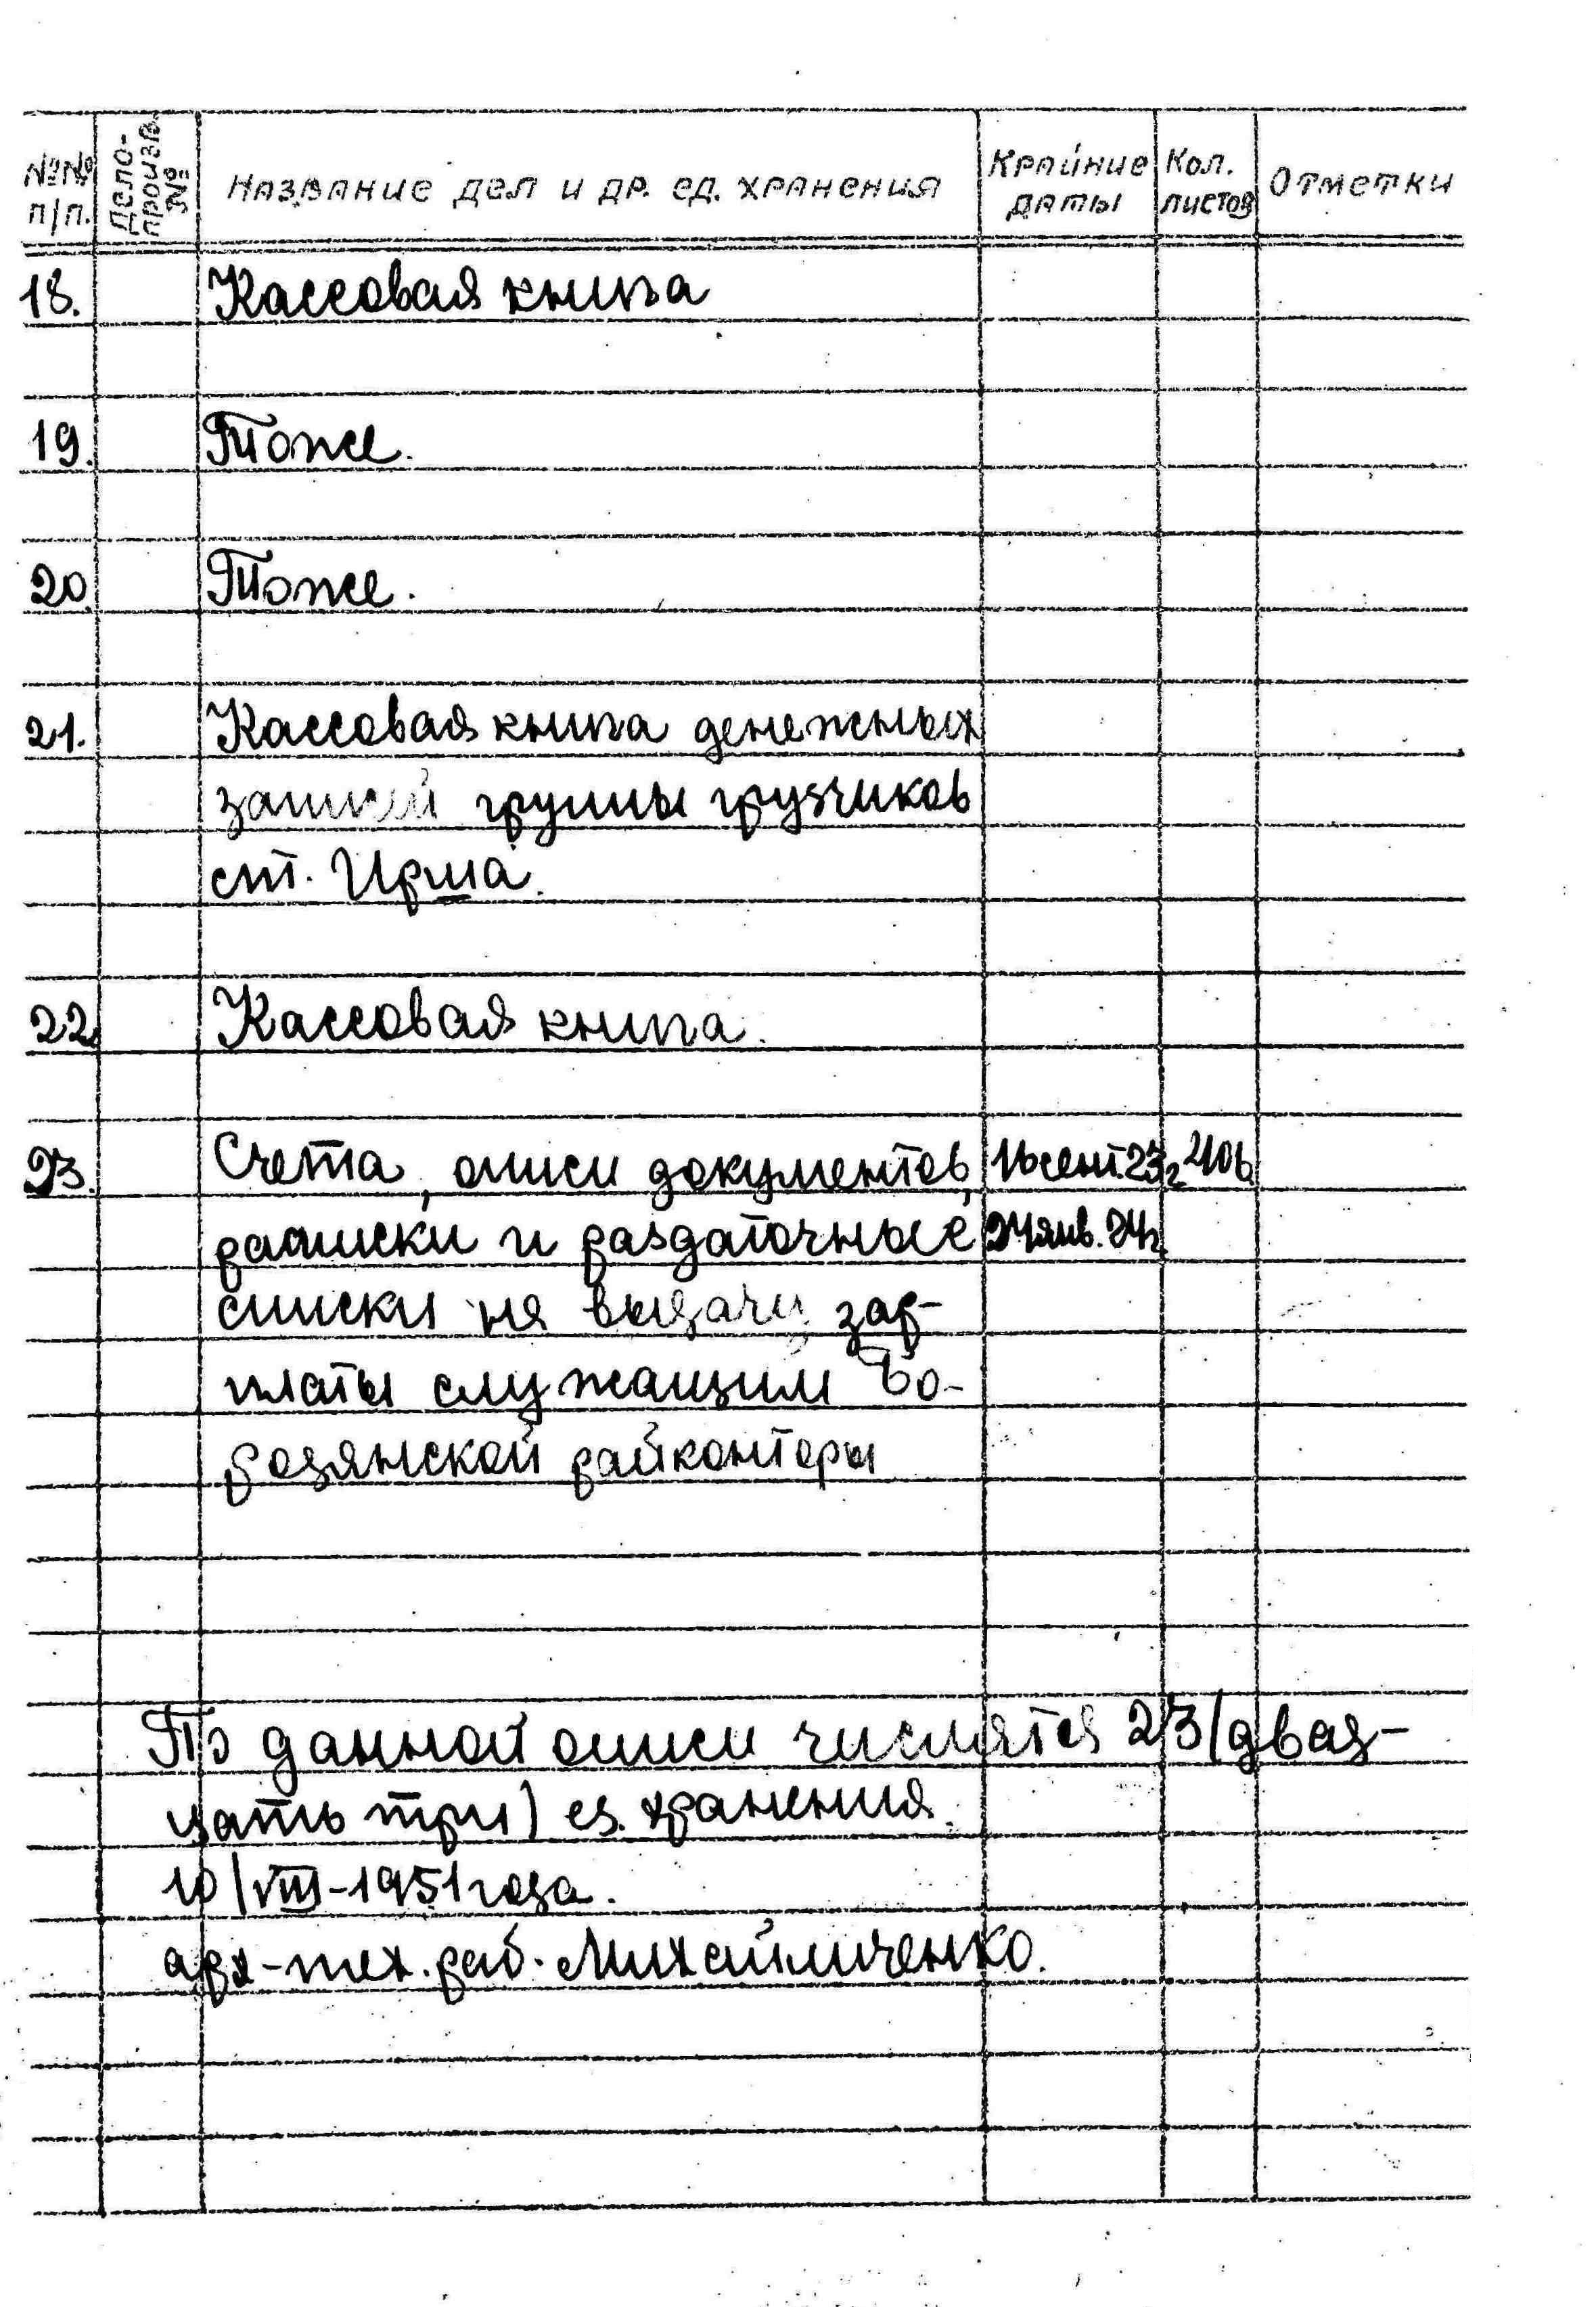 №№ п/п.
Дело-произв. №
Название дел и др. ед. хранения
Крайние даты
Кол. листов
Отметки
18. Кассовая книга
19. Тоже.
20. Тоже.
21. Кассовая книга денежных
записей группы грузчиков
ст. Ирша.
22. Кассовая книга.
23. Счета, описи документов, 16 сент. 23г. 406
расписки и раздаточные 24 янв. 24г.
списки на выдачу зар-
платы служащим Бо-
родянской райконторы
По данной описи числятся 23 (двад-
цать три) ед. хранения.
10/VIII-1951 года.
арх-тех. раб. Михайличенко.